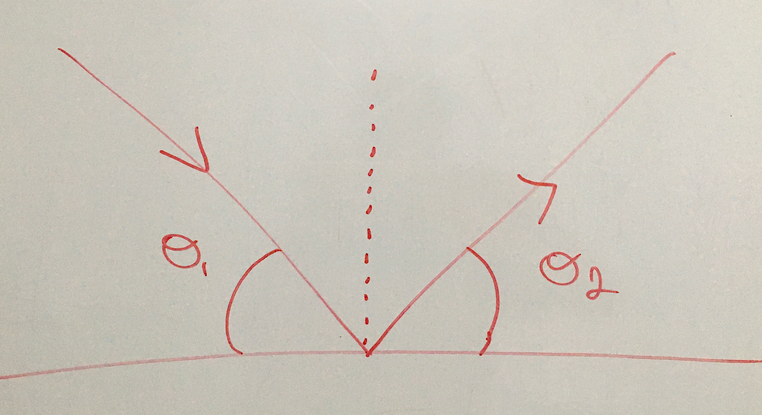 θ₁
θ₂